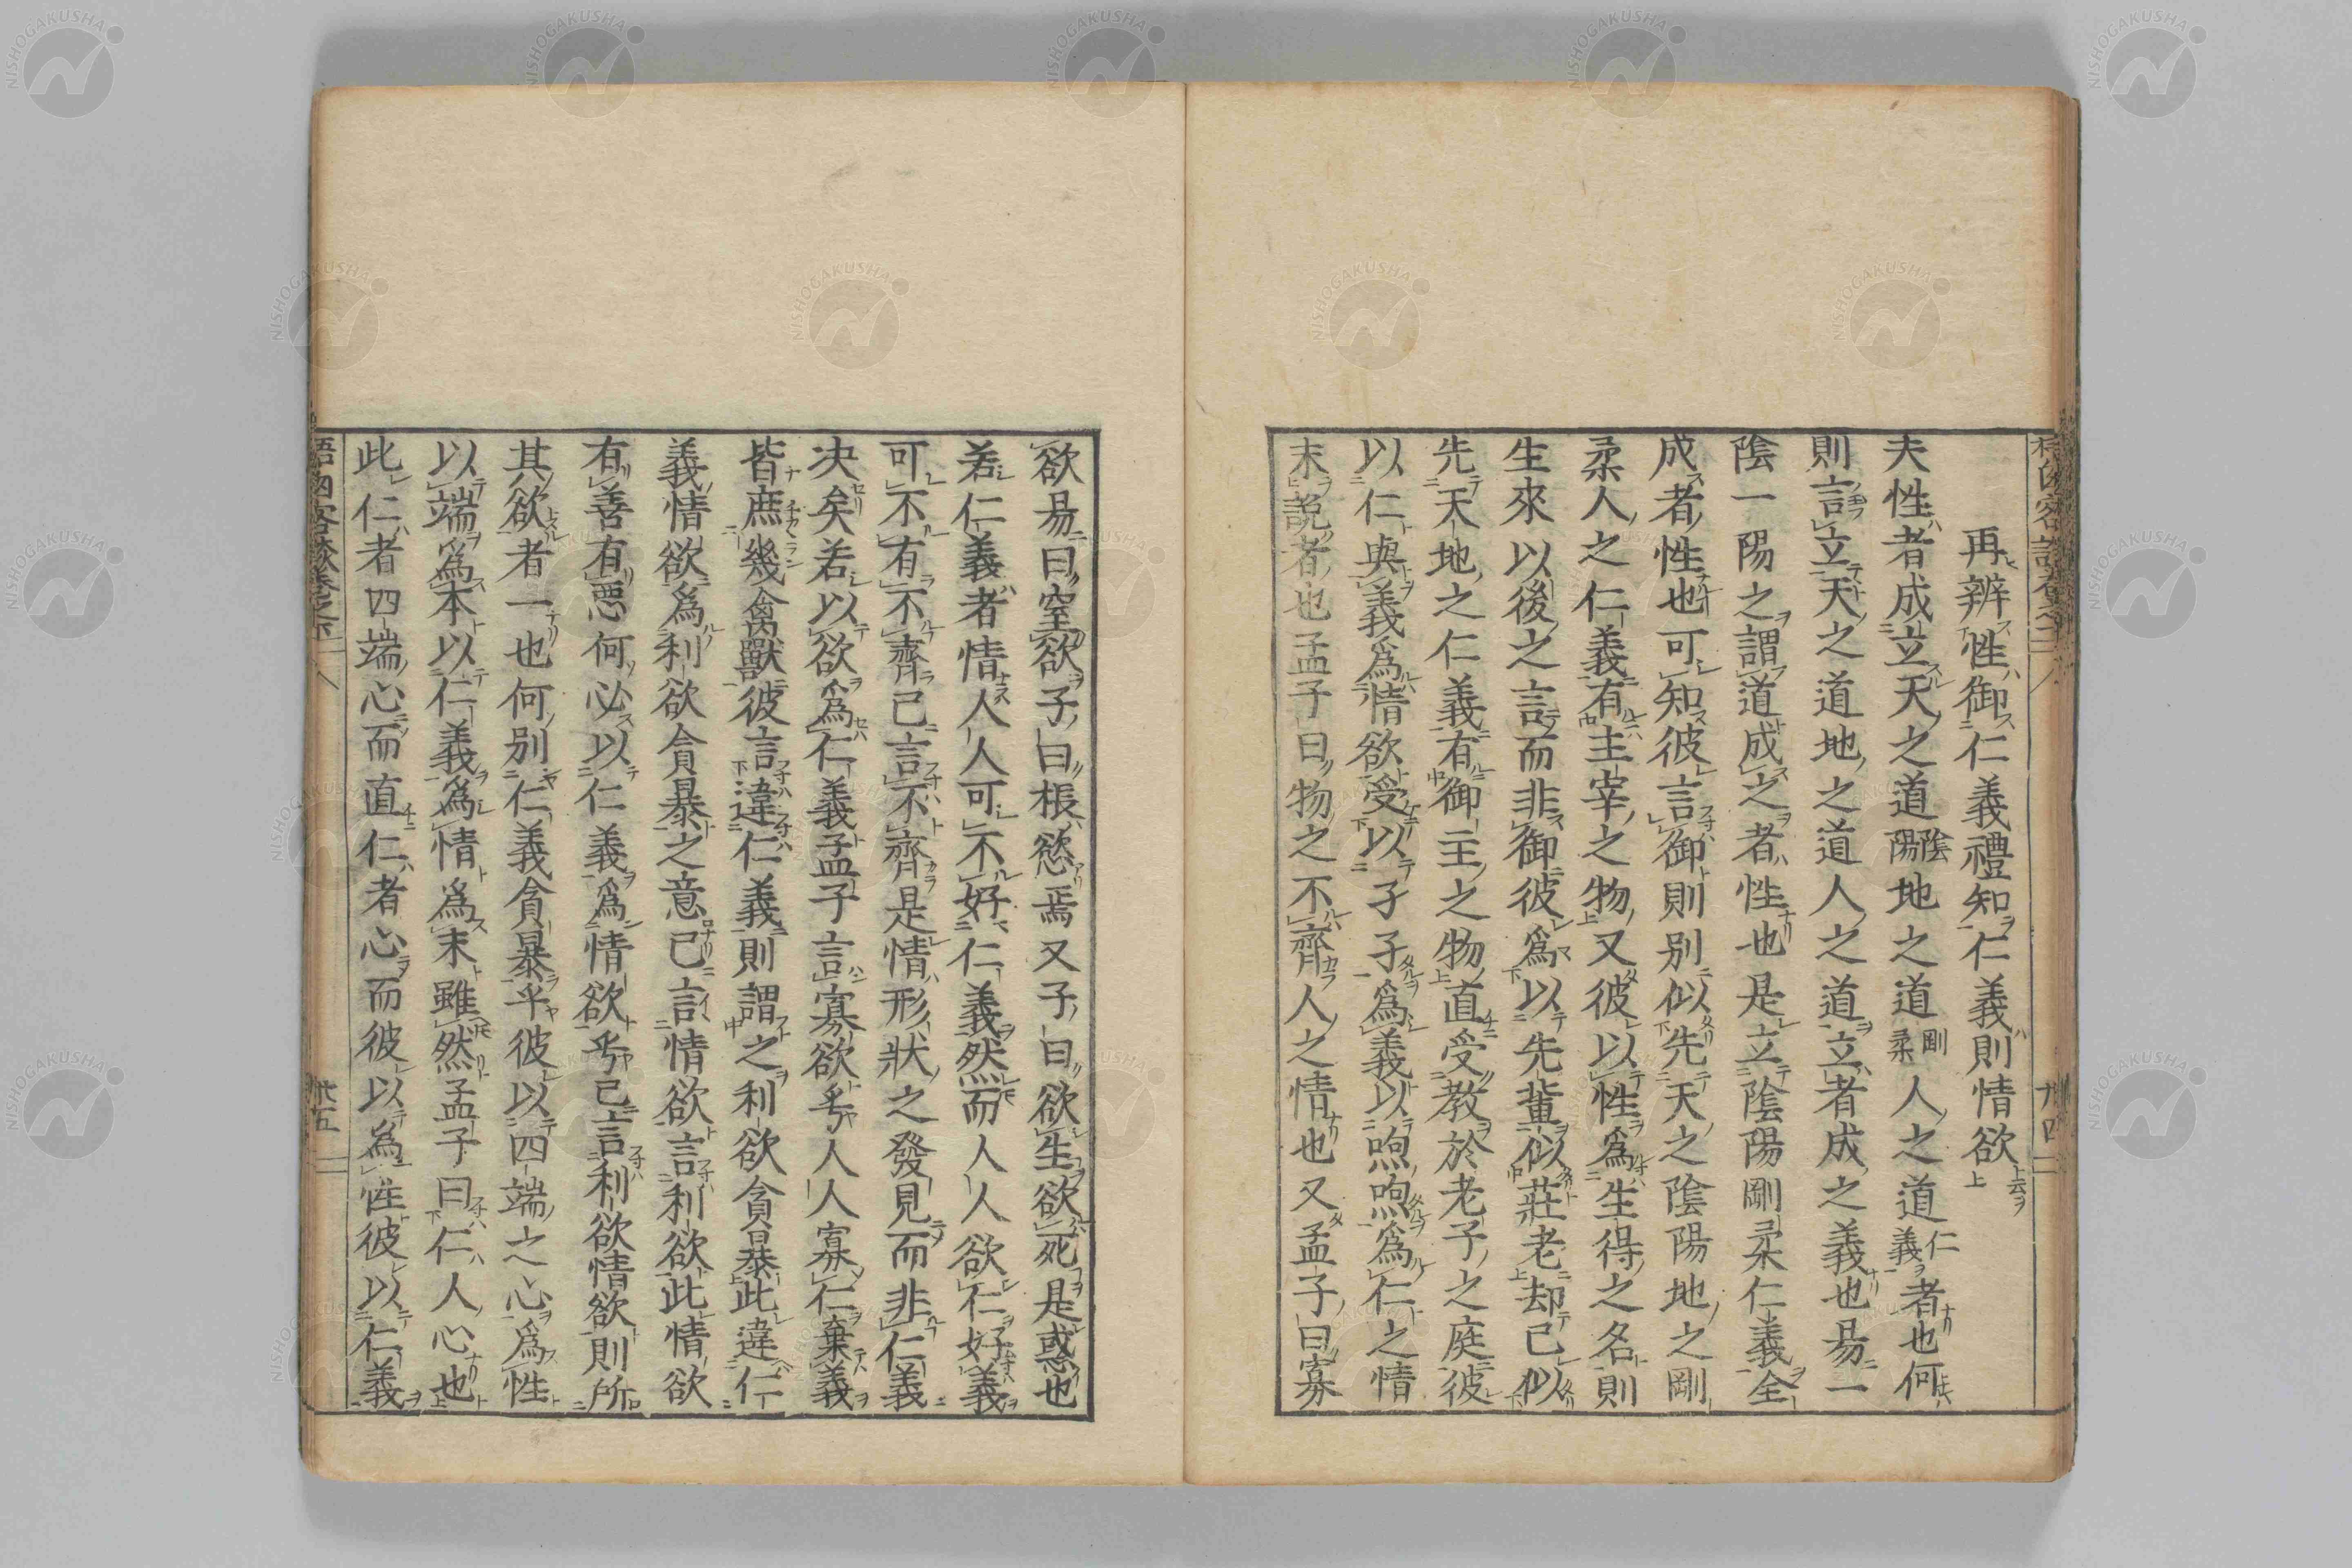 再辨性御仁義禮知仁義則情欲上
夫性者成立天之道陰陽地之道剛柔人之道仁義者也何
則言立天之道地之道人之道立者成之義也易一
陰一陽之謂道成之者性也是立陰陽剛柔仁義全
成者性也可知彼言御則別似先天之陰陽地之剛
柔人之仁義有主宰之物又彼以性為生得之名則
生來以後之言而非御彼為以先輩似莊老却已似
先天地之仁義有御主之物直受教於老子之庭彼
以仁與義為情欲受以孑孑為義以喣喣為仁之情
末説者也孟子曰物之不齊人之情也又孟子曰寡
欲易曰窒欲子曰棖慾焉又子曰欲生欲死是惑也
若仁義者情人人可不好仁義然而人人欲仁好義
可不有不齊已言不齊是情形狀之發見而非仁義
决矣若以欲為仁義孟子言寡欲乎人人寡仁棄義
皆庶幾禽獸彼言違仁義則謂之利欲貪暴此違仁
義情欲為利欲貪暴之意已言情欲言利欲此情欲
有善有惡何必以仁義為情欲乎已言利欲情欲則所
其欲者一也何別仁義貪暴乎彼以四端之心為性
以端為本以仁義為情為末雖然孟子曰仁人心也
此仁者四端心而直仁者心而彼以為性彼以仁義
NISHOGAKUSHA